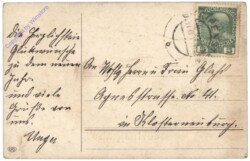 Die herzlichsten
Glückwünsche
zu dem neuen
Jahr
und viele
Grüße von
uns
An Herrn und Frau
Agnesstrasse No 41.
in Klosterneuburg.